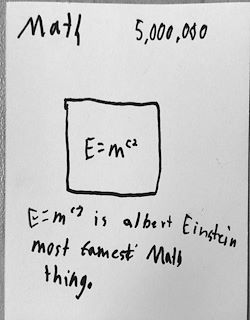 Math 5,000,000
E=mc²
E=mc² is albert Einstein
most famest Math
thing.